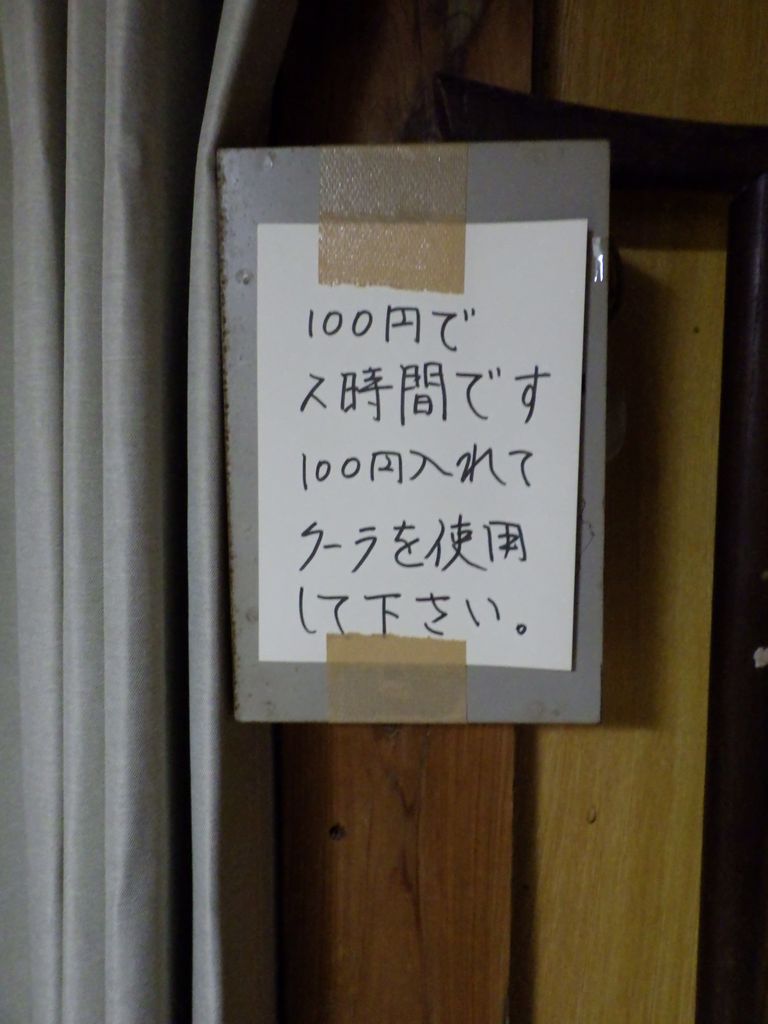 100円で
2時間です
100円入れて
クーラを使用
して下さい。